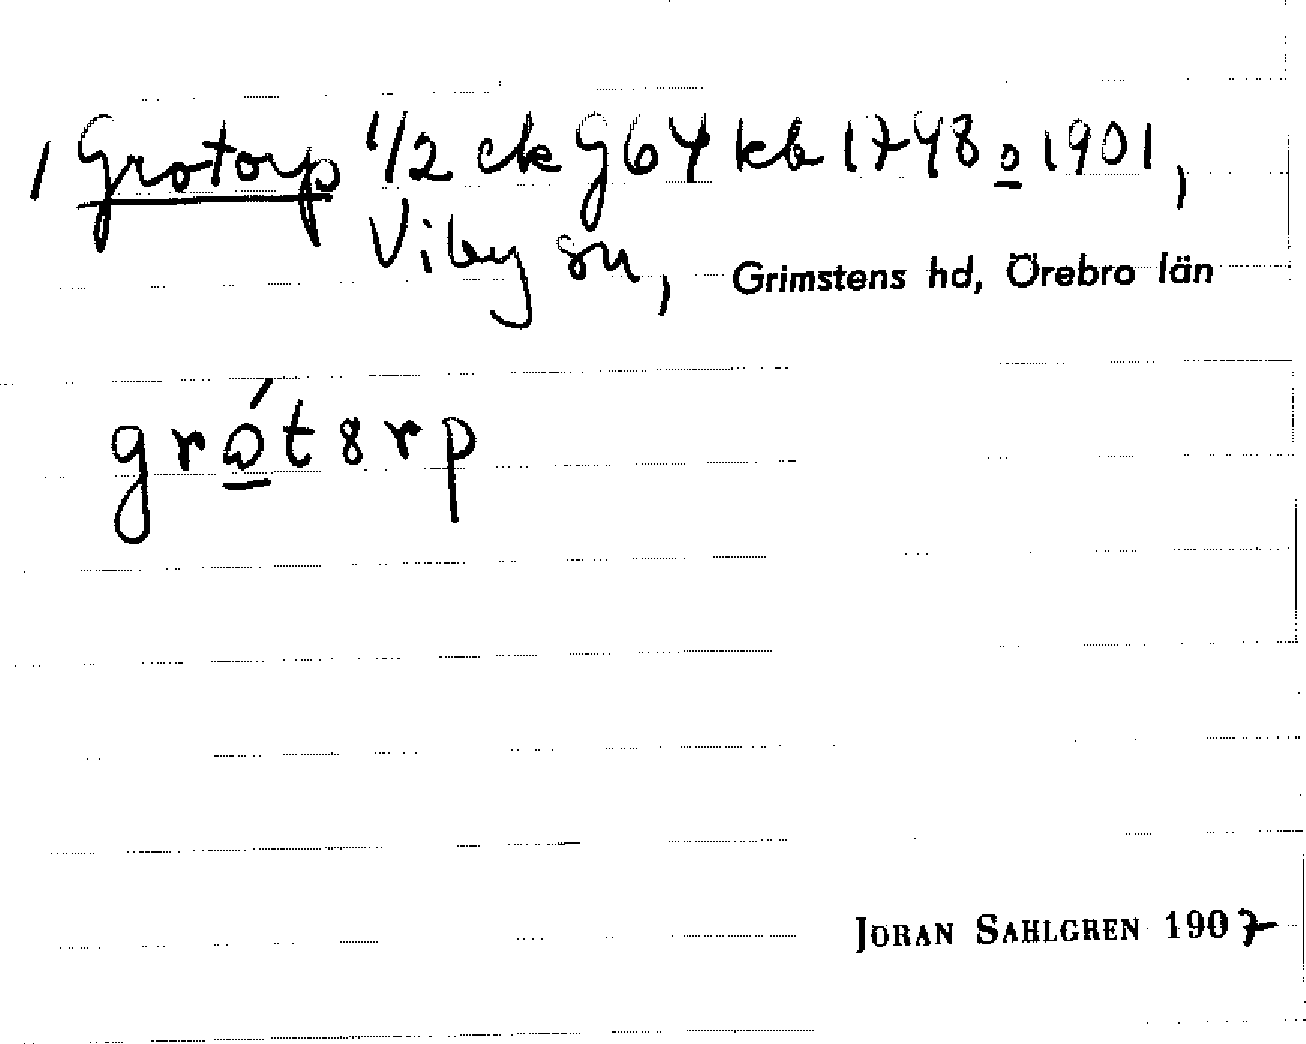 1 Grotorp 1/2 ck G64 kb 1748 o 1901,
Viby sn, Grimstens hd, Örebro län
grót8rp
JORAN SAHLGREN 1907